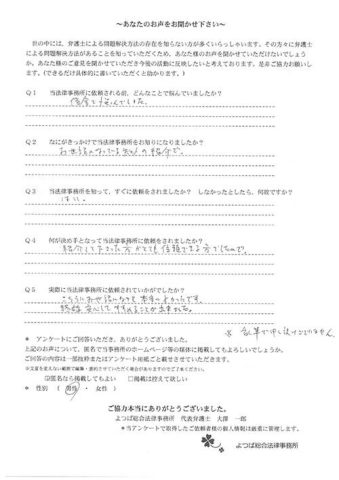 ～あなたのお声をお聞かせ下さい～
世の中には、弁護士による問題解決方法の存在を知らない方が多くいらっしゃいます。その方々に弁護士
による問題解決方法があることを知っていただくため、あなた様のお声を聞かせていただけないでしょう
か。あなた様のご意見を聞かせていただき今後の活動に反映したいと考えております。是非ご協力お願いし
ます。(できるだけ具体的に書いていただくと助かります。)
Q1 当法律事務所に依頼される前、どんなことで悩んでいましたか？
借金で悩んでいました。
Q2 なにがきっかけで当法律事務所をお知りになりましたか？
お世話になっている知人の紹介で。
Q3 当法律事務所を知って、すぐに依頼をされましたか？ しなかったとしたら、何故ですか？
はい。
Q4 何が決め手となって当法律事務所に依頼をされましたか？
紹介して下さった方がとても信頼できる方でしたので。
Q5 実際に当法律事務所に依頼されていかがでしたか？
こちらにお世話になりて本当に良かったです。
終始安心してすすめることが出来ました。
※ 乱筆で申し訳ございません
＊ アンケートにご回答いただき、ありがとうございます。
上記のお声について、匿名で当事務所のホームページ等の媒体に掲載してもよろしいでしょうか。
ご回答の内容は一部抜粋またはアンケート用紙ごと載せさせていただきます。
※文意を変えない範囲で編集・要約させていただく場合がありますのでご了承ください。
☑匿名なら掲載してもよい □掲載は控えて欲しい
＊ 性別 （ 男性 ・ 女性 ）
ご協力本当にありがとうございました。
よつば総合法律事務所 代表弁護士 大澤 一郎
＊当アンケートで取得したご依頼者様の個人情報は厳重に管理します。
よつば総合法律事務所